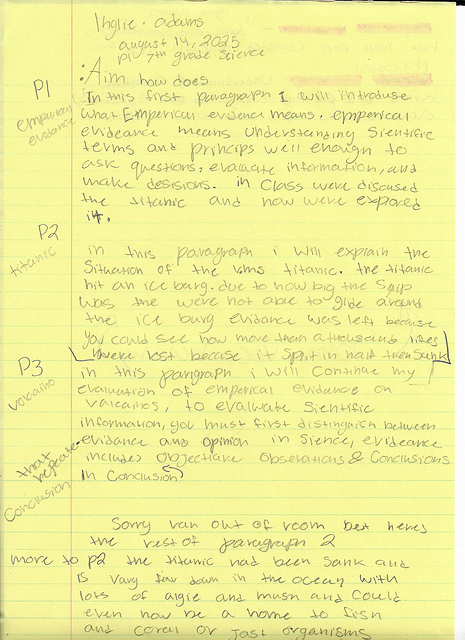 Inglie. adams
august 14, 2025
P1 7th grade science
: Aim how does
P1
emperical
evidance
In this first paragraph I will introduse
what Emperical evidence means. emperical
evideance means understanding Sientific
terms and princips well enough to
ask questions, evaluate information, and
make desisions. in Class were discused
the titanic and how were expored
it.
P2
titanic
in this paragraph i will explain the
Situation of the titanic. the titanic
hit an ice burg. due to how big the Ship
was the were not able to glide around
the ice burg evidance was left because
you could see how more than a thousand lifes
were lost becase it Split in half then Sank
P3
volcaino
in this paragraph i will Continue my
evaluation of emperical evidance on
valcainos, to evaluate Sientific
information, you must first distinguish between
evidance and opinion in Sience, evideance
includes Objective Obserations & Conclusions
that
repeate
Conclusion
in Conclusion
Sorry ran out of room bet heres
the rest of paragraph 2
more to P2 the titanic had been Sank and
is vary far down in the ocean with
lots of algie and mush and Could
even now be a home to fish
and coral or Jast organisms